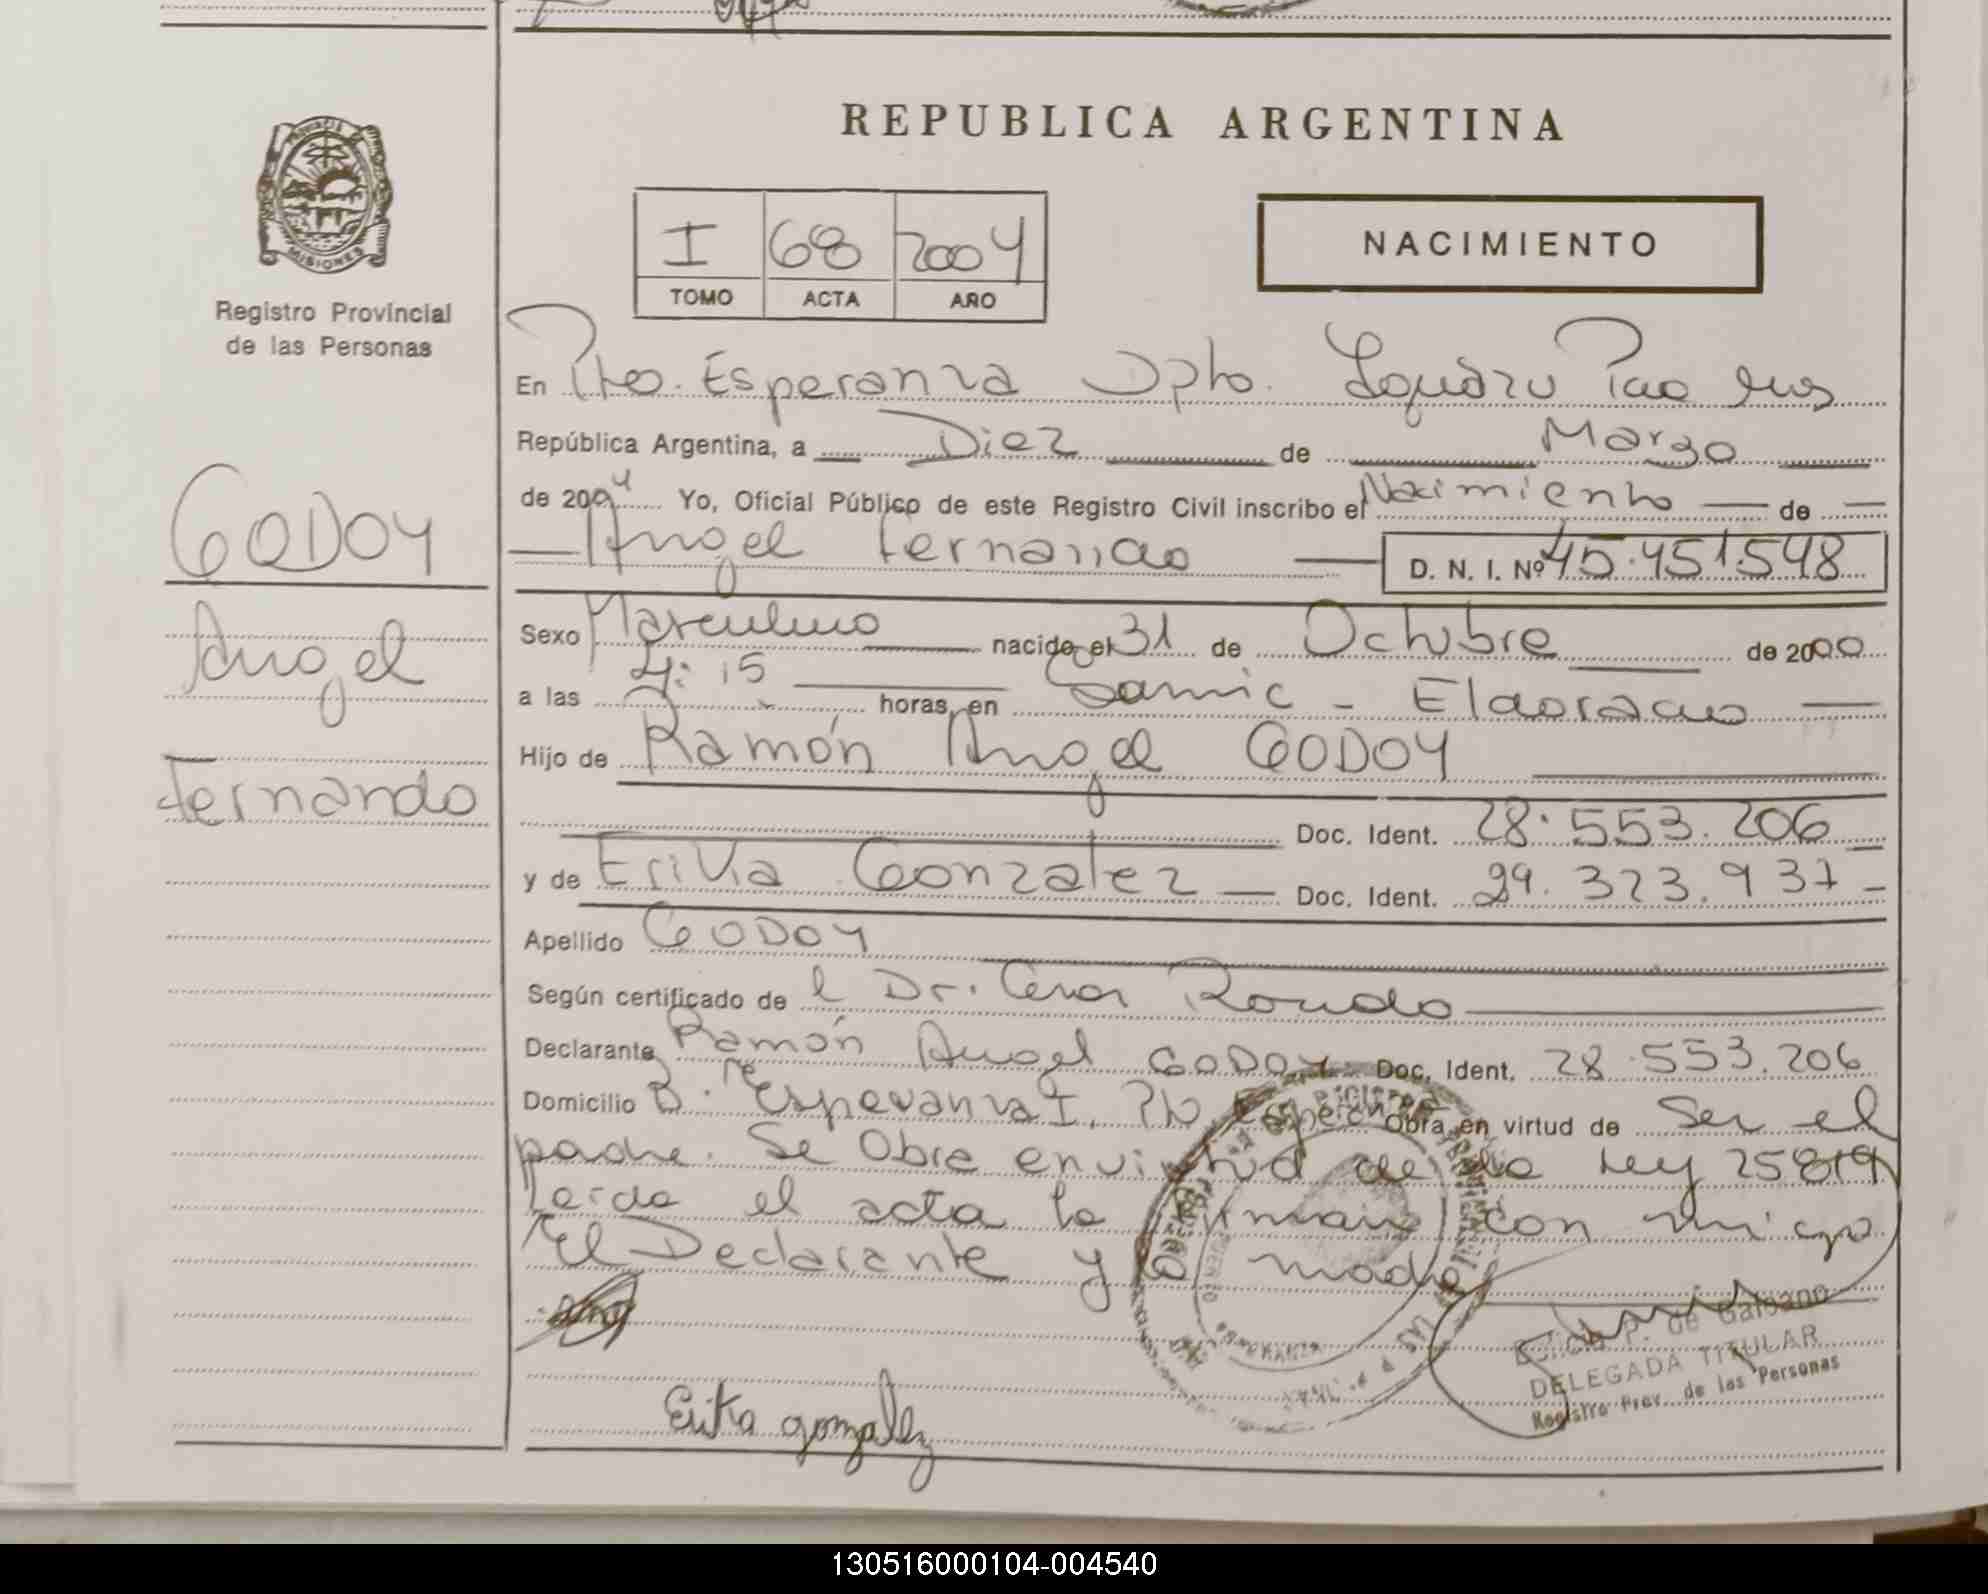 REPUBLICA ARGENTINA
PROVINCIA DE
MISIONES
Registro Provincial
de las Personas
I 68 2004
TOMO ACTA AÑO
NACIMIENTO
GODOY
Angel
Fernando
En Pto. Esperanza Dpto. Iguazu Pcia Mns
República Argentina, a Diez de Marzo
de 2004 Yo, Oficial Público de este Registro Civil inscribo el Nacimiento de
Angel Fernando D. N. I. Nº 45.451.548
Sexo Masculino nacido el 31 de Octubre de 2000
a las 4:15 horas, en Samic - Eldorado
Hijo de Ramón Angel GODOY
Doc. Ident. 28.553.206
y de Erika Gonzalez Doc. Ident. 29.323.937
Apellido GODOY
Según certificado de l Dr. Cesar
Declarante Ramón Angel GODOY Doc. Ident. 28.553.206
Domicilio B. Esperanza I, Pto Esperanza Obra en virtud de Ser el
padre. Se Obra en virtud de la Ley 25819
Leida el acta la firman con migo
El Declarante y la madre
Erika gonzalez
P. de Galeano
DELEGADA TITULAR
Registro Prov. de las Personas
130516000104-004540